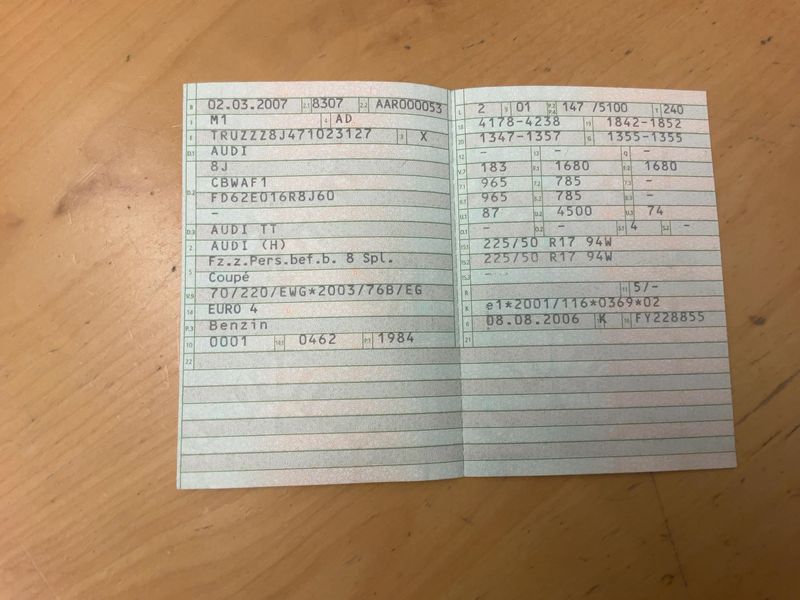 B 02.03.2007 2.1 8307 2.2 AAR000053
J M1 4 AD
E TRUZZZ8J471023127 3 X
D.1 AUDI
8J
D.2 CBWAF1
FD62E016R8J60
-
D.3 AUDI TT
2 AUDI (H)
5 Fz.z.Pers.bef.b. 8 Spl.
Coupé
V.9 70/220/EWG*2003/76B/EG
14 EURO 4
P.3 Benzin
10 0001 14.1 0462 P.1 1984
22
L 2 9 01 P.2 P.4 147 /5100 T 240
18 4178-4238 19 1842-1852
20 1347-1357 G 1355-1355
12 - 13 - Q -
V.7 183 F.1 1680 F.2 1680
7.1 965 7.2 785 7.3 -
8.1 965 8.2 785 8.3 -
U.1 87 U.2 4500 U.3 74
O.1 - O.2 - S.1 4 S.2 -
15.1 225/50 R17 94W
15.2 225/50 R17 94W
15.3 -
R 11 5/-
K e1*2001/116*0369*02
6 08.08.2006 K 16 FY228855
21